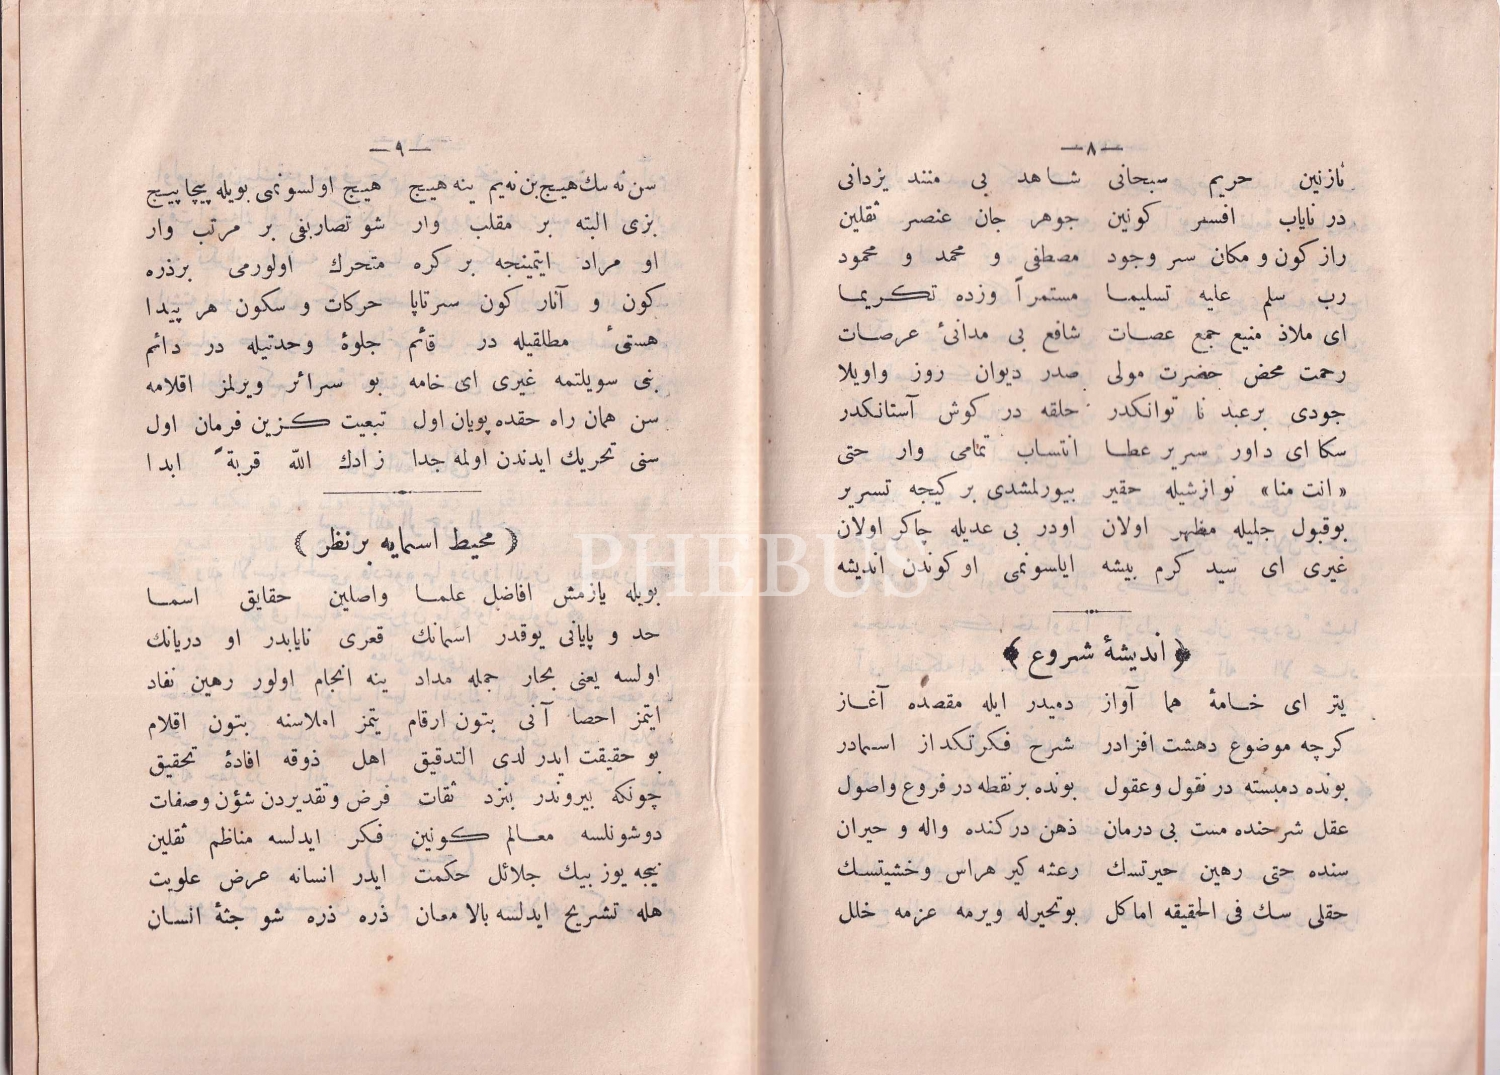 —٨—
نازنین حریم سبحانی شاهد بی مثند یزدانی
در نایاب افسر کونین جوهر جان عنصر ثقلین
راز کون و مکان سر وجود مصطفی و محمد و محمود
رب سلم علیه تسلیما مستمراً وزده تکریما
ای ملاذ منیع جمع عصات شافع بی مدانیٔ عرصات
رحمت محض حضرت مولی صدر دیوان روز واویلا
جودی برعبد نا توانکدر حلقه در کوش آستانکدر
سکا ای داور سریر عطا انتساب تمامی وار حتی
«انت منا» نوازشیله حقیر بیورلمشدی بر کیجه تسریر
بوقبول جلیله مظهر اولان اودر بی عدیله چاکر اولان
غیری ای سید کرم پیشه ایلسونمی اوکوندن اندیشه
﴿ اندیشهٔ شروع ﴾
یتر ای خامهٔ هما آواز دمیدر ایله مقصده آغاز
کرچه موضوع دهشت افزادر شرح فکرتکداز اسمادر
بونده دمبسته در نقول وعقول بونده برنقطه در فروع واصول
عقل شرحنده مست بی درمان ذهن درکنده واله و حیران
سنده حتی رهین حیرتسک رعشه کیر هراس وخشیتسک
حقلی سک فی الحقیقه اماکل بوتحیرله ویرمه عزمه خلل
—٩—
سن نه سك هیچ بن نه یم ینه هیچ هیچ اولسونمی بویله پیچا پیچ
بزی البته بر مقلب وار شو تصاریفی بر مرتب وار
او مراد ایتمینجه بر کره متحرك اولورمی برذره
کون و آثار کون سرتاپا حرکات و سکون هر پیدا
هستیٔ مطلقیله در قائم جلوهٔ وحدتیله در دائم
بنی سویلتمه غیری ای خامه بو سرائر ویرلمز اقلامه
سن همان راه حقده پویان اول تبعیت کزین فرمان اول
سنی تحریك ایدندن اولمه جدا زادك الله قربةً ابدا
﴿ محیط اسمایه بر نظر ﴾
بویله یازمش افاضل علما واصلین حقایق اسما
حد و پایانی یوقدر اسمانك قعری نایابدر او دریانك
اولسه یعنی بحار جمله مداد ینه انجام اولور رهین نفاد
ایتمز احصا آنی بتون ارقام یتمز املاسنه بتون اقلام
بو حقیقت ایدر لدی التدقیق اهل ذوقه افادهٔ تحقیق
چونکه بیروندر بنزد ثقات فرض وتقدیردن شؤن وصفات
دوشونلسه معالم کونین فکر ایدلسه مناظم ثقلین
نیجه یوز بیك جلائل حکمت ایدر انسانه عرض علویت
هله تشریح ایدلسه بالا معان ذره ذره شو جثهٔ انسان
PHEBUS